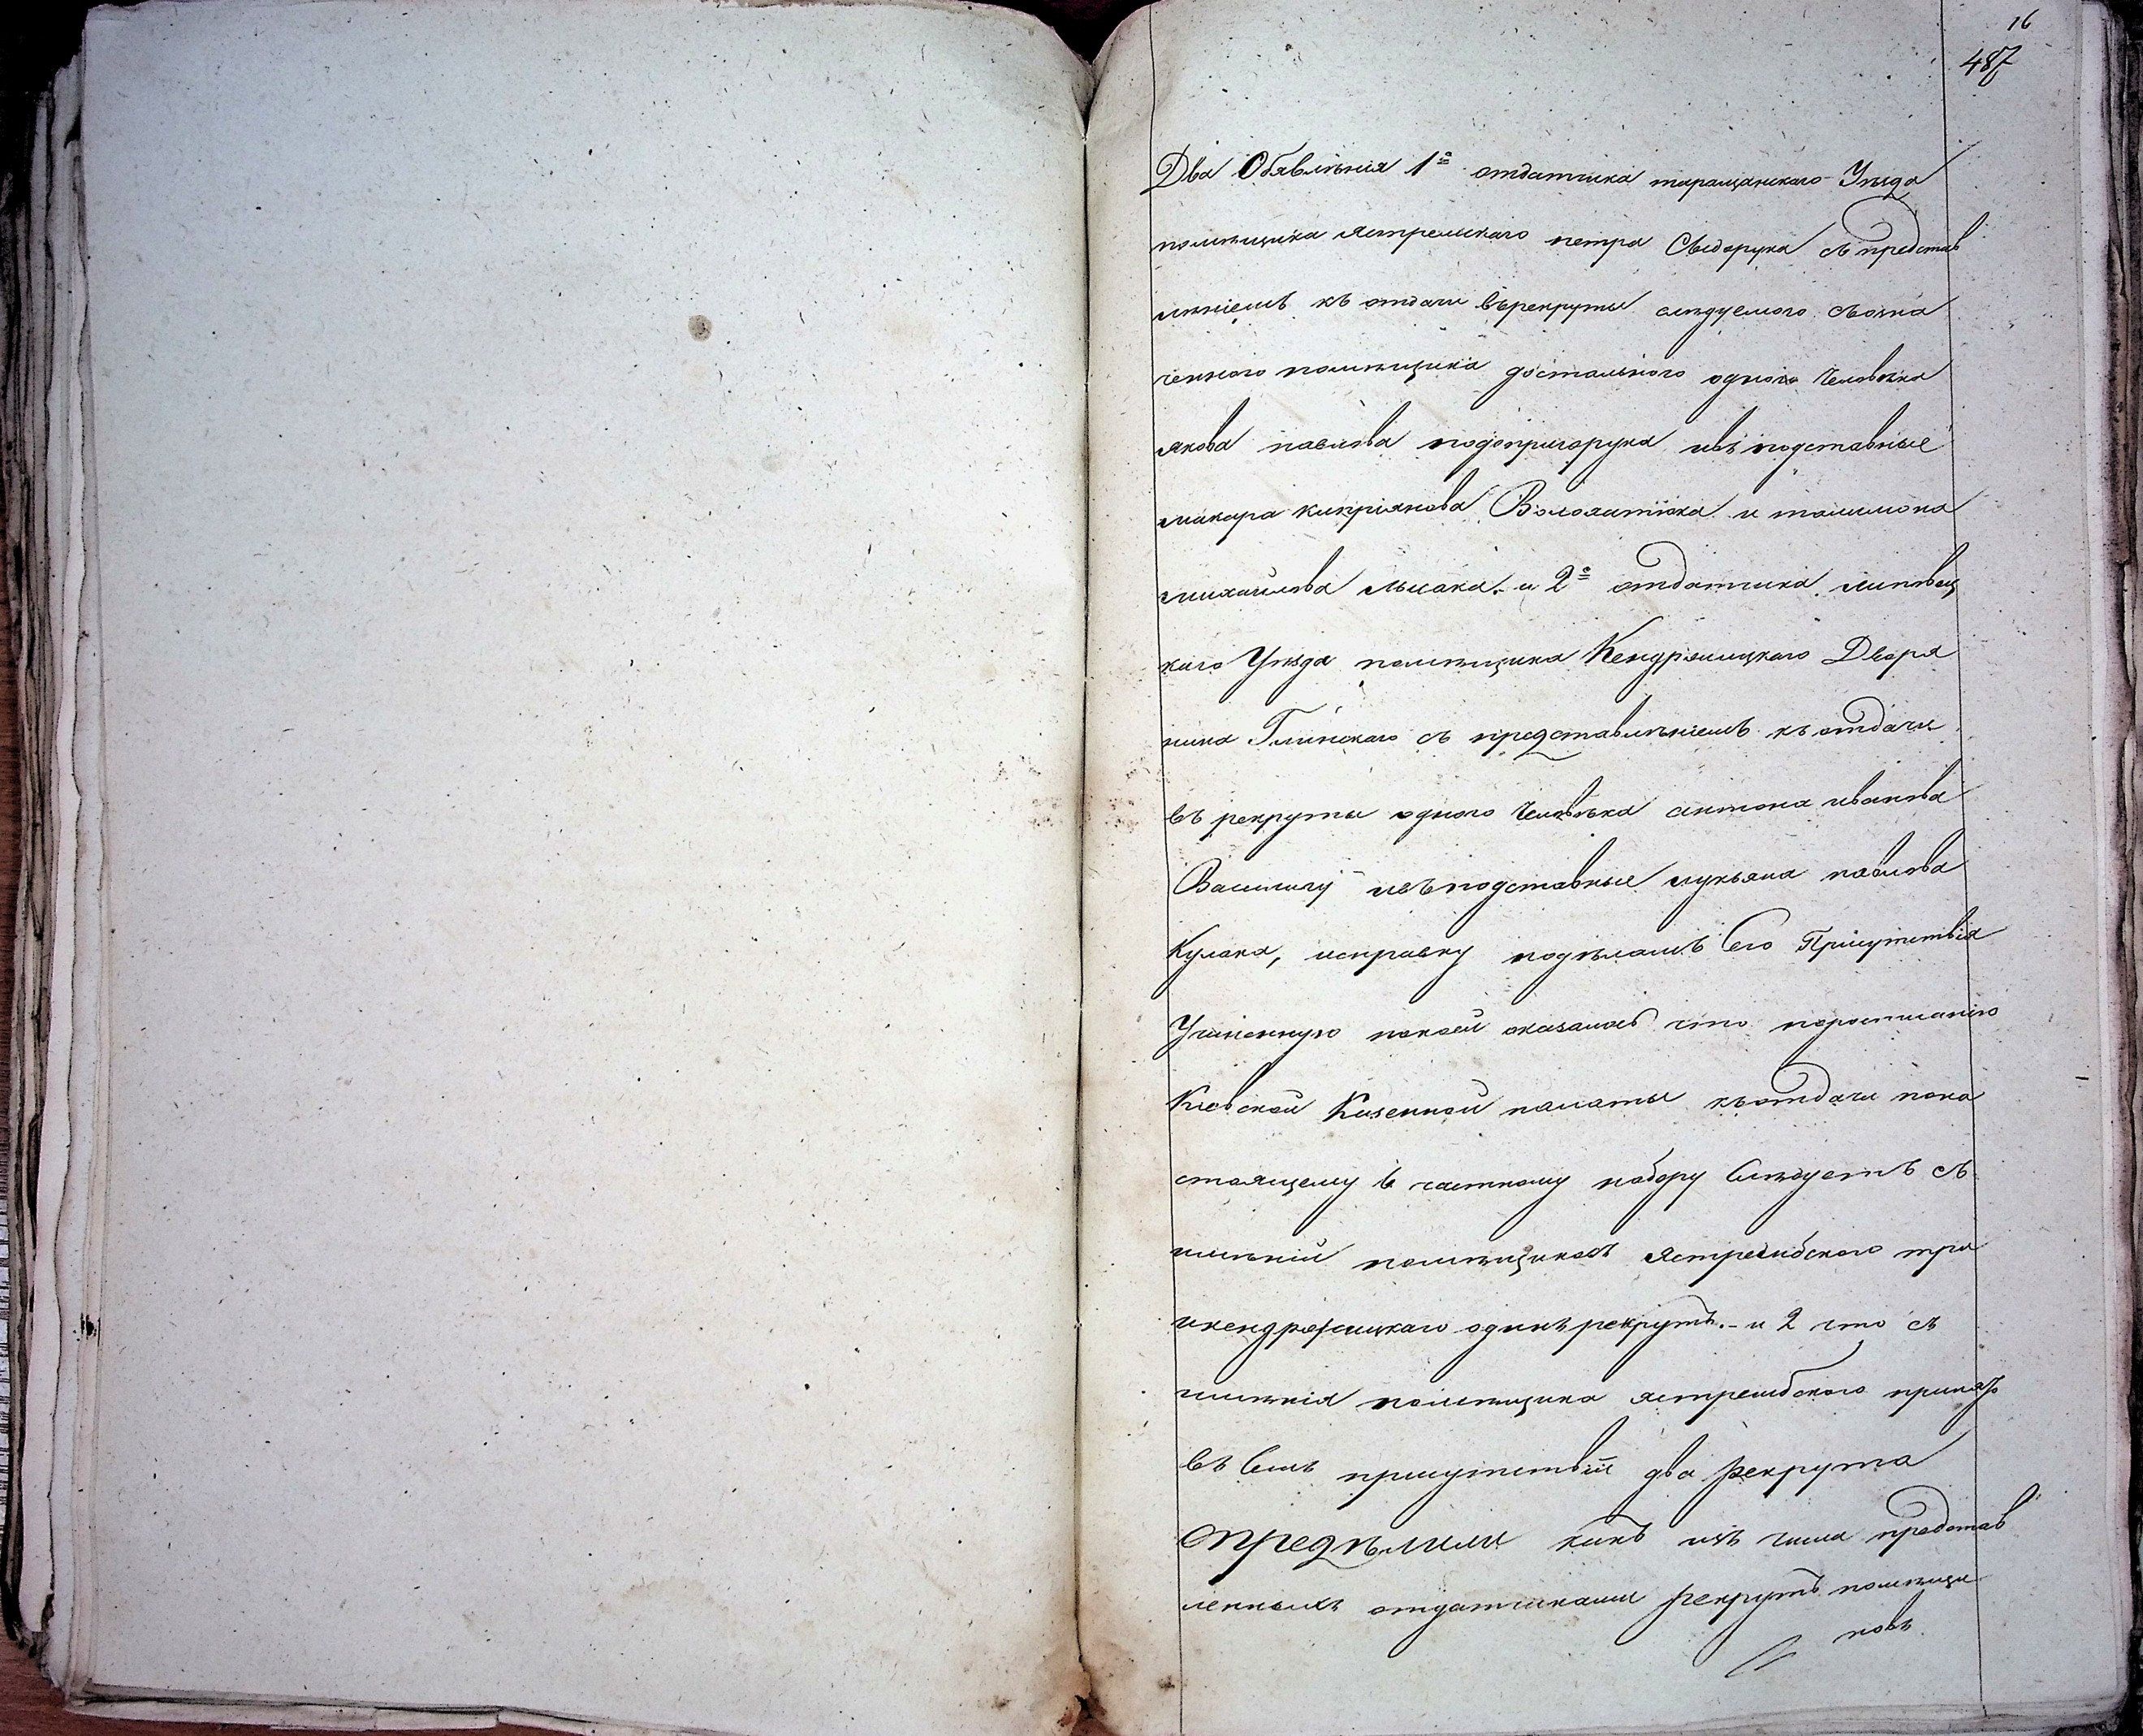 16
487
Два Объявлѣнія 1е отдатчика таращанского Уѣзда
помѣщика Ястрембского петра Сыдорука съ представ
лѣніемъ къ отдачи въ рекруты слѣдуемого съозна
ченного помѣщика достального одного Человѣка
якова павлова подопригорука ивъ подставные
макара кипріянова Волохатюка и
михайлова лысака. и 2е отдатчика липовец
каго Уѣзда помѣщика Кендржицкаго Дворя
нина Глинскаго съ представлѣніемъ къ отдачи
въ рекруты одного Человѣка антона иванова
ивъ подставные лукъяна павлова
Кулака, исправку подѣламъ Сего Присутствія
Учиненную покоей оказалось что поросписанію
Кіевской Казенной палаты къ отдачи пона
стоящему 6 частному набору Слѣдуетъ съ
имѣній помѣщиковъ Ястрембского три
икендржицкаго одинъ рекрутъ. и 2 что съ
имѣнія помѣщика ястрембского принято
въ Семъ присутствіи два рекрута
опредѣлили какъ изъ числа представ
ленныхъ отдатчиками рекрутъ помѣщи
ковъ